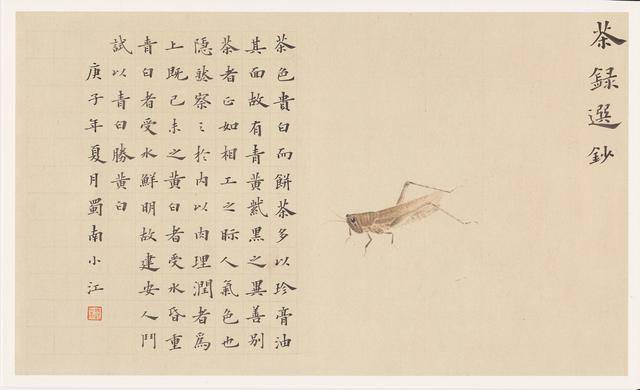 茶録選鈔
茶色貴白而餅茶多以珍膏油
其面故有青黃紫黑之異善别
茶者正如相工之眎人氣色也
隱然察之於內以肉理潤者爲
上既已末之黃白者受水昏重
青白者受水鮮明故建安人鬥
試以青白勝黃白
庚子年夏月蜀南小江